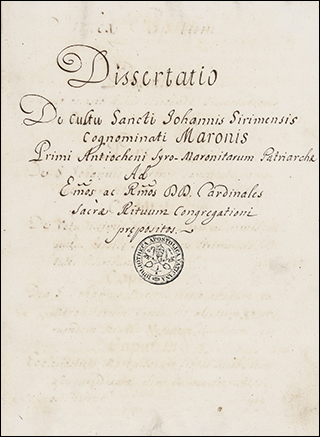 Dissertatio
De Cultu Sancti Johannis Sirimensis
Cognominati Maronis
Primi Antiocheni Syro-Maronitarum Patriarchæ
Ad
Em̃os ac Rm̃os DD. Cardinales
Sacræ Rituum Congregationi
prepositos.
BIBLIOTHECA APOSTOLICA VATICANA